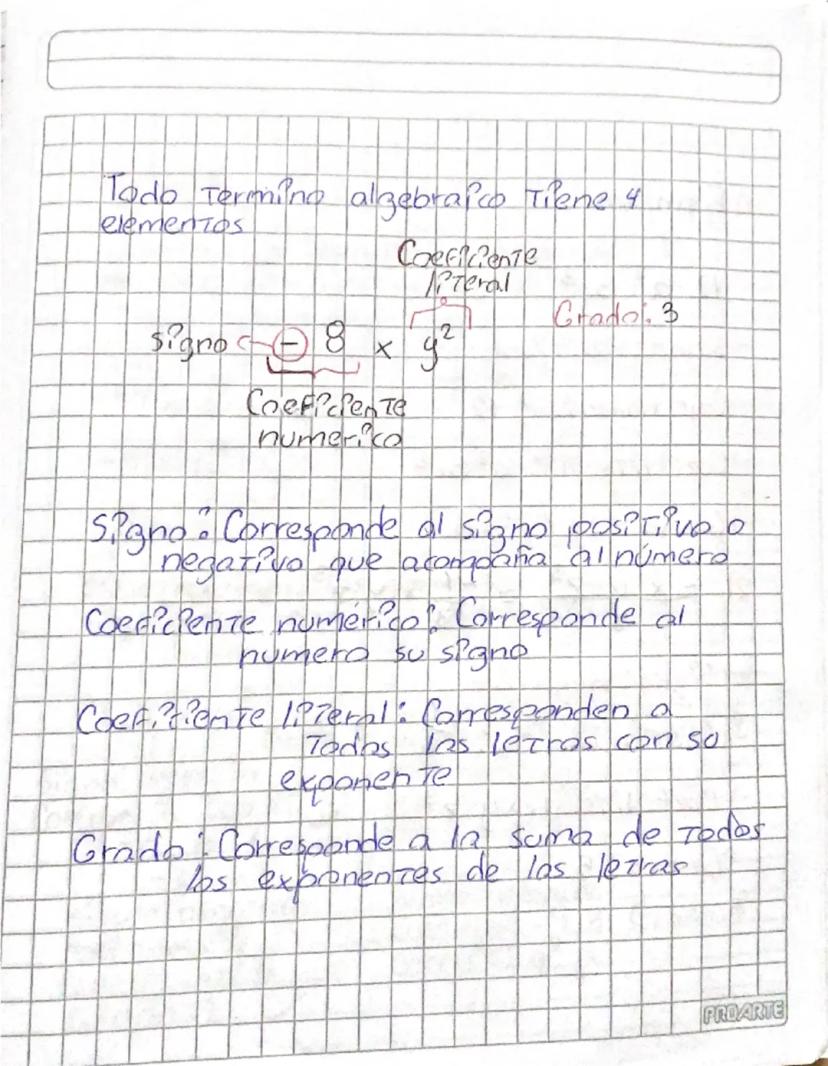 Todo Termino algebraico Tiene 4
elementos
Coeficiente
literal
Grado: 3
signo - 8 x y²
Coeficiente
numerico
Signo: Corresponde al signo positivo o
negativo que acompaña al número
Coeficiente numérico: Corresponde al
numero su signo
Coeficiente literal: Corresponden a
Todas las letras con so
exponente
Grado: Corresponde a la suma de todos
los exponentes de las letras
PROARTE